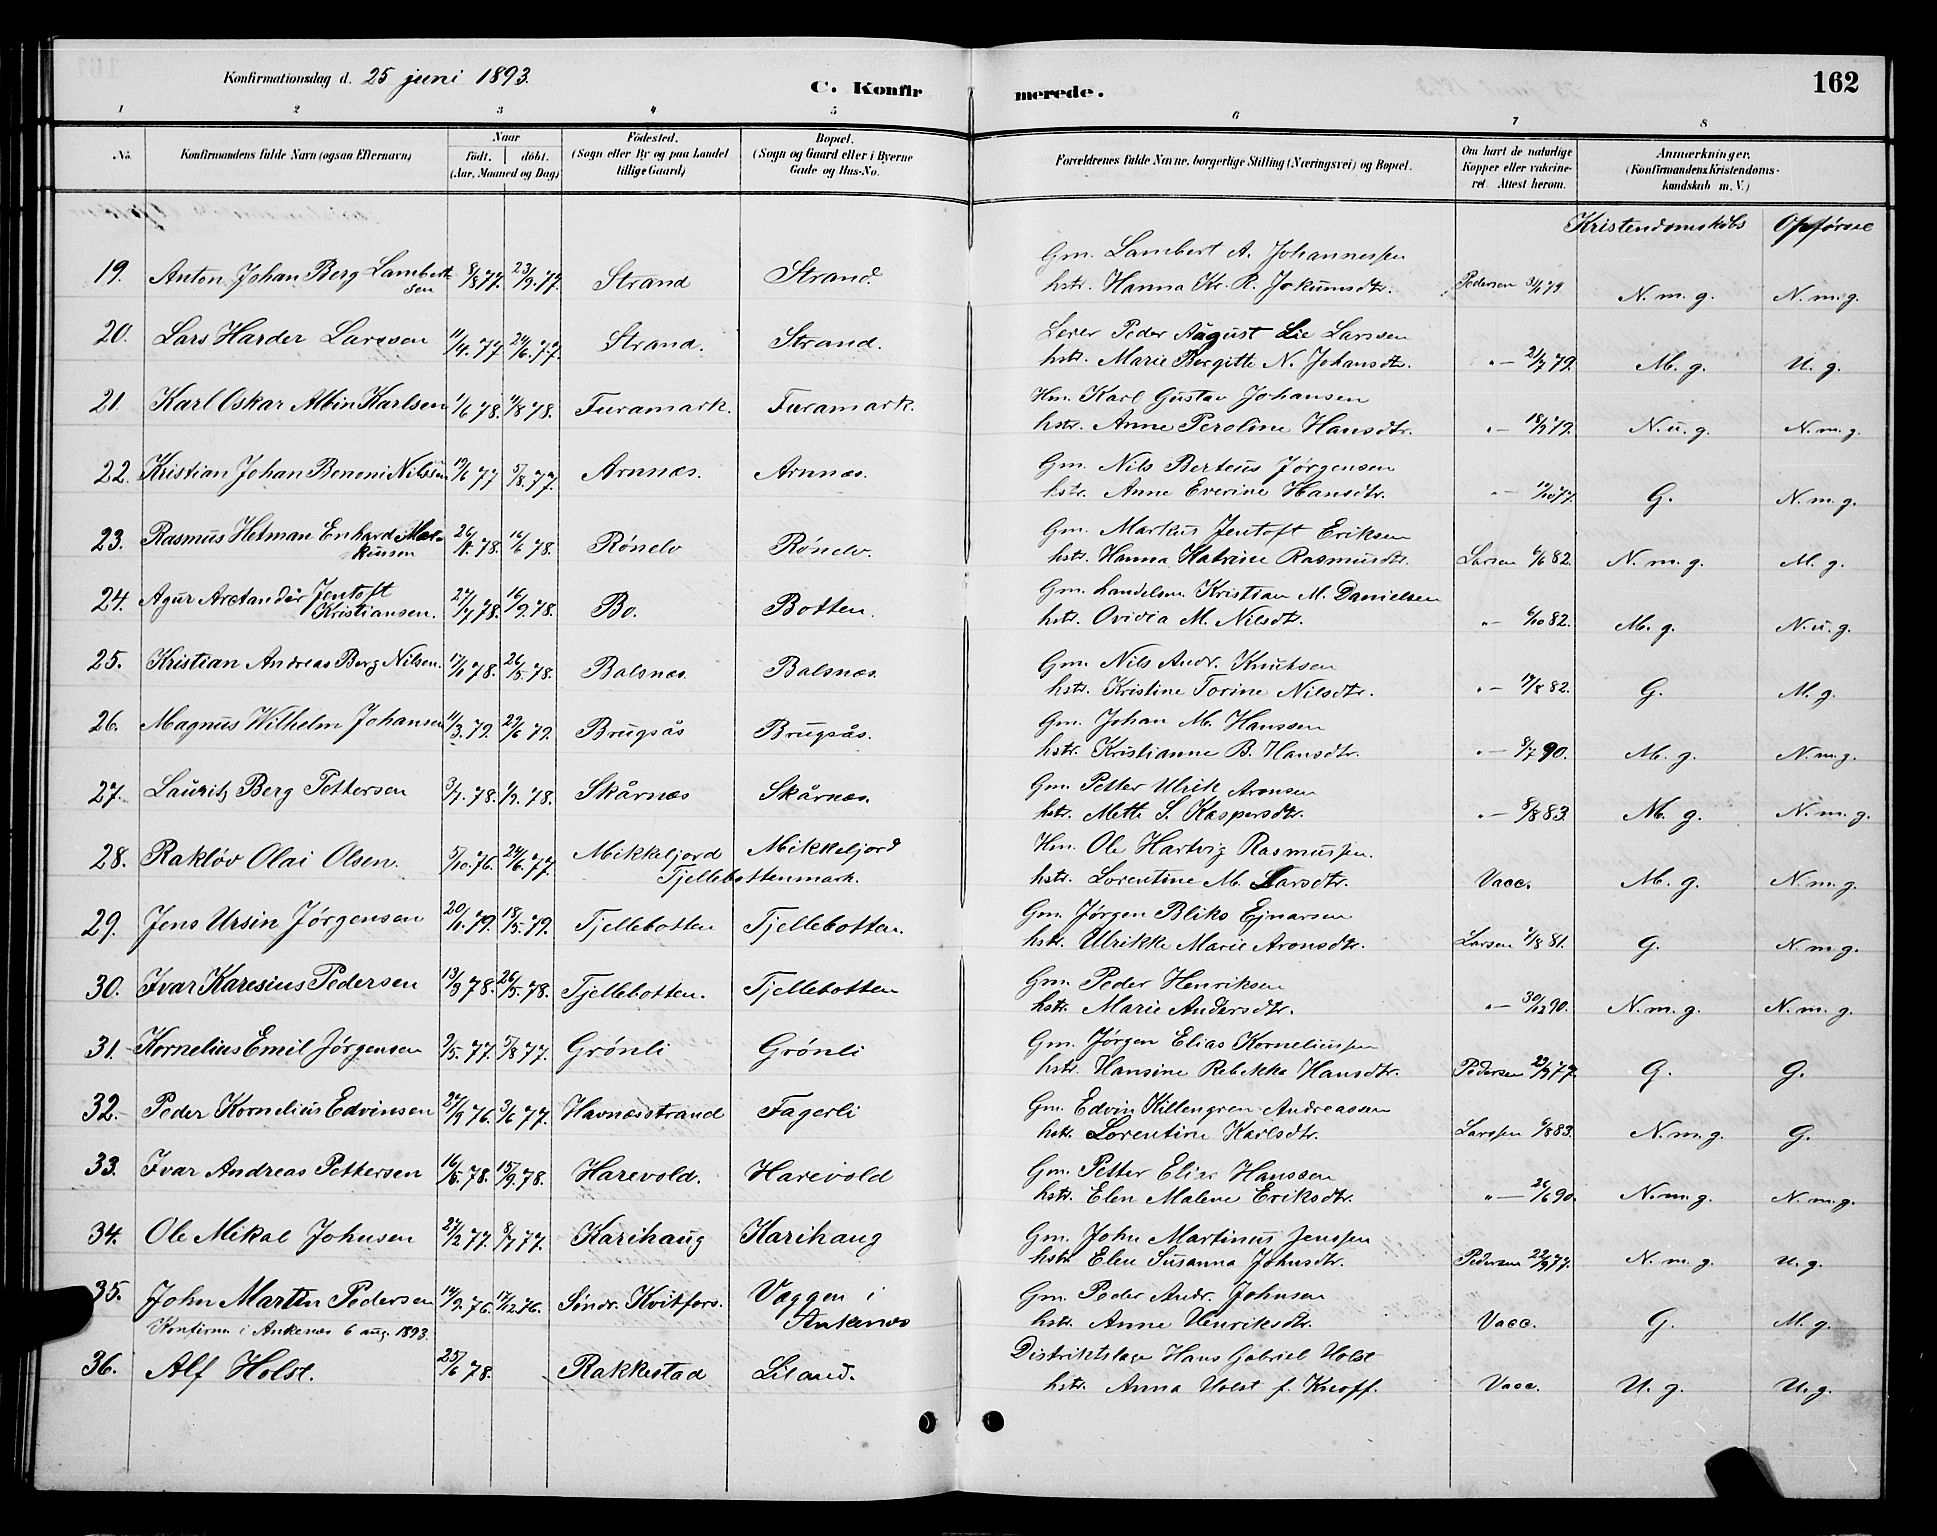 Konfirmationsdag d. 25 juni 1893.
C. Konfirmerede.
162
1 2 3 4 5 6 7 8
No. Konfirmandens fulde Navn (ogsaa Efternavn) Naar födt. döbt. (Aar, Maaned og Dag) Födested. (Sogn eller By og paa Landet tillige Gaard) Bopæl. (Sogn og Gaard eller i Byerne Gade og Hus-No. Forældrenes fulde Navne, borgerlige Stilling (Næringsvei) og Bopæl. Om havt de naturlige Kopper eller vakcineret. Attest herom. Anmærkninger. (Konfirmandens Kristendomskundskab m. V.)
Kristendomskdbs Opførsel
19. Anton Johan Berg Lambertsen 8/8 77. 23/9. 77. Strand Strand. Gm. Lambert A. Johannessen
hstr. Hanna Kr. R. Jokumsdtr. Pedersen 79 N. m. g. N. m. g.
20. Lars Harder Larssen 11/4. 77 24/6. 77. Strand. Strand. Leier Peder August Lie Larssen
hstr. Marie Bergitte N. Johansdtr. " — 21/7 79. M. g. U. g.
21. Karl Oskar Albin Karlsen 1/6 78. 11/8 78. Furamark. Furamark. Hm. Karl Gustav Johansen
hstr. Anne Peroline Hansdtr. " — 79. N. u. g. N. m. g.
22. Kristian Johan Benoni Nilssen 19/6 77 5/8. 77. Arnnæs. Arnnæs. Gm. Nils Berteus Jørgensen
hstr. Anne Everine Hansdtr. " — 77. G. N. m. g.
23. Rasmus Hetman Enhard Markussen 78. 16/6 78. Rönelv Rönelv. Gm. Markus Jentoft Eriksen
hstr. Hanna Katrine Rasmusdtr. Larsen 6/6 82. N. m. g. M. g.
24. Agur Arctander Jentoft Kristiansen. 27/7 78. 16/9. 78. Bo. Botten. Gm. handelsm. Kristian M. Danielsen
hstr. Ovidia M. Nilsdtr. " — 6/10 82. M. g. N. u. g.
25. Kristian Andreas Berg Nilsen. 78. 26/5. 78. Balsnæs. Balsnæs. Gm. Nils Andr. Knutsen
hstr. Kristine Torine Nilsdtr. " — 17/8 82. G. M. g.
26. Magnus Wilhelm Johansen 11/3. 79. 22/6 79. Brugsås Brugsås. Gm. Johan M. Hanssen
hstr. Kristianne B. Hansdtr. " — 8/7 90. M. g. N. m. g.
27. Lauritz Berg Pettersen 3/7. 78. 1/9. 78. Skårnæs Skårnæs. Gm. Petter Ulrik Aronsen
hstr. Mette S. Kaspersdtr. " — 8/8 83. M. g. N. m. g.
28. Rakløv Olai Olsen. 5/10. 76. 24/6. 77. Mikkeljord Mikkeljord Hm. Ole Hartvig Rasmussen.
Tjellebottenmark. hstr. Lorentine M. Larsdtr. Vacc. M. g. N. m. g.
29. Jens Ursin Jørgensen 20/1. 79. 18/5. 79. Tjellebotten Tjellebotten. Gm. Jørgen Bliks Ejnarsen
hstr. Ulrikke Marie Aronsdtr. Larsen 81. G. N. m. g.
30. Ivar Karesius Pedersen 13/3 78. 26/5. 78. Tjellebotten. Tjellebotten Gm. Peder Henriksen
hstr. Marie Andersdtr. " — 90. N. m. g. N. m. g.
31. Kornelius Emil Jørgensen 2/5. 77. 5/8 77. Grönli Grönli Gm. Jørgen Elias Korneliussen
hstr. Hansine Rebekka Hansdtr. Pedersen 77. G. G.
32. Peder Kornelius Edvinsen 27/9 76. 3/6 77. Havnæsstrand Fagerli Gm. Edvin Killengren Andreassen
hstr. Lorentine Karlsdtr. Larssen 83. N. m. g. G.
33. Ivar Andreas Pettersen 16/6. 78. 15/9. 78. Harevold. Harevold Gm. Petter Elias Hanssen
hstr. Elen Malene Eriksdtr. " — 26/6 90. N. m. g. N. m. g.
34. Ole Mikal Johnsen 27/2 77. 8/7 77. Karihaug Karihaug Gm. John Martinus Jenssen
hstr. Elen Susanna Johnsdtr. Pedersen 22/9 77. N. m. g. U. g.
35. John Martin Pedersen 14/9. 76. 17/12 76. Söndr. Kvitfors. Vaggen i Ankenæs Gm. Peder Andr. Johnsen
Konfirm. i Ankenæs 6 aug. 1893. hstr. Anne Henriksdtr. Vacc. G. M. g.
36. Alf Holst. 25/6 78. Rakkestad Liland. Distriktslæge Hans Gabriel Holst
hstr. Anna Holst f. Knoff. Vacc. U. g. U. g.